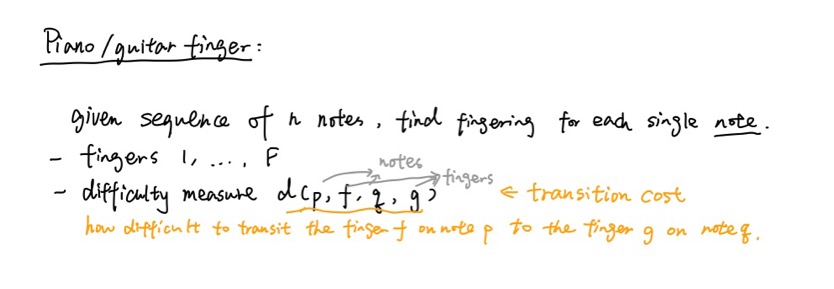 Piano/guitar finger:
given sequence of n notes, find fingering for each single note.
- fingers 1, ..., F
notes
- difficulty measure d(p, f, q, g) fingers ← transition cost
how difficult to transit the finger f on note p to the finger g on note q.